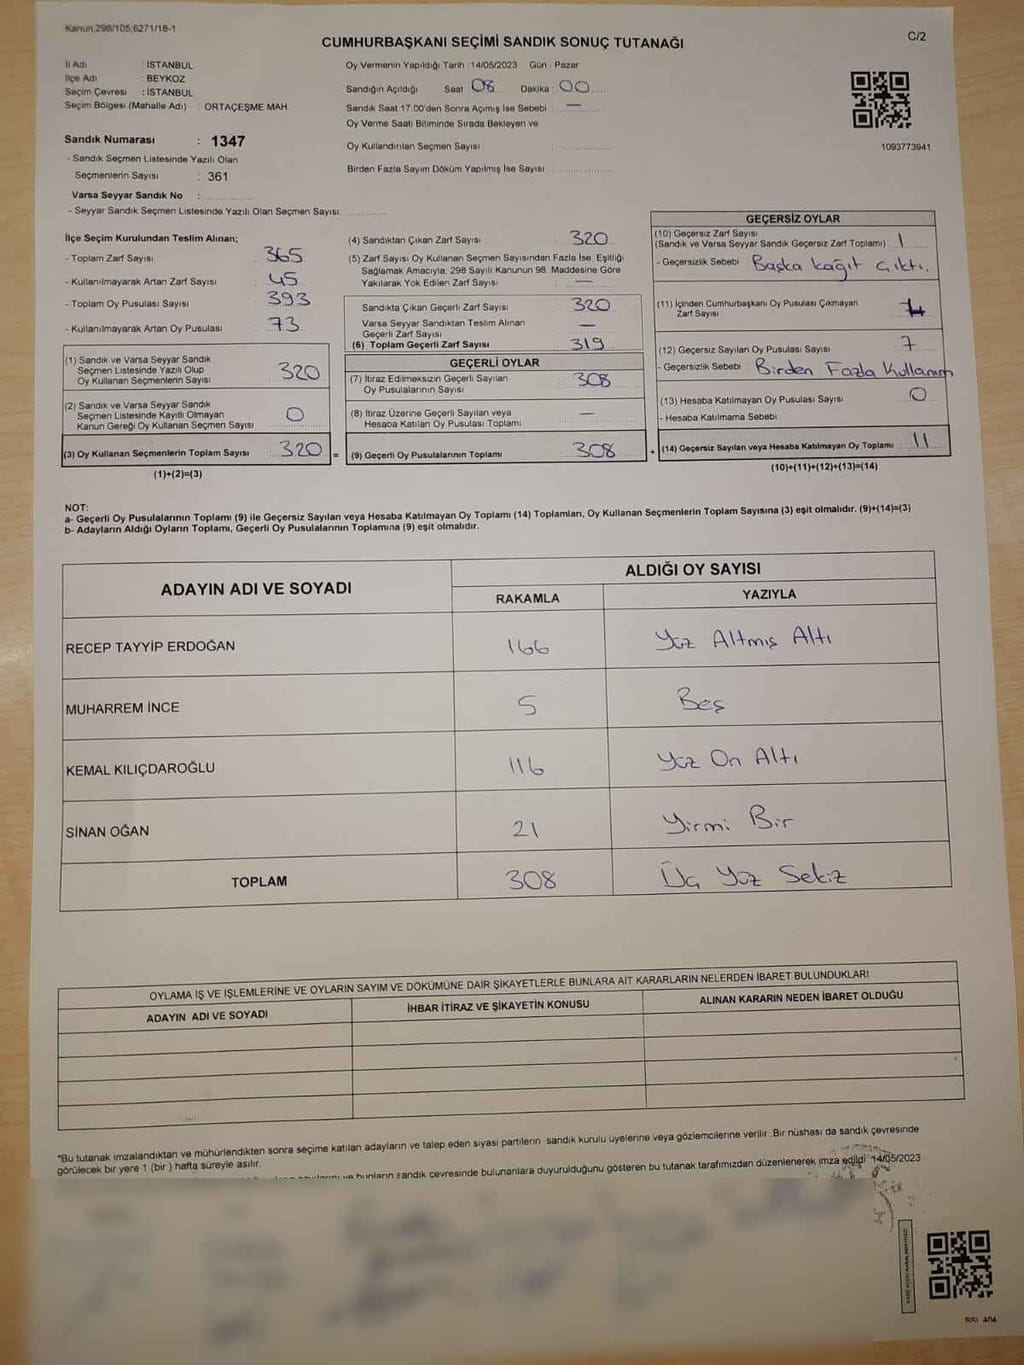 Kanun 298/105,6271/18-1
C/2
CUMHURBAŞKANI SEÇİMİ SANDIK SONUÇ TUTANAĞI
İl Adı : İSTANBUL
İlçe Adı : BEYKOZ
Seçim Çevresi : İSTANBUL
Seçim Bölgesi (Mahalle Adı) : ORTAÇEŞME MAH.
Sandık Numarası : 1347
- Sandık Seçmen Listesinde Yazılı Olan
Seçmenlerin Sayısı : 361
Varsa Seyyar Sandık No :
- Seyyar Sandık Seçmen Listesinde Yazılı Olan Seçmen Sayısı:
Oy Vermenin Yapıldığı Tarih :14/05/2023 Gün : Pazar
Sandığın Açıldığı Saat 08 Dakika : 00
Sandık Saat 17.00'den Sonra Açımış İse Sebebi : —
Oy Verme Saati Bitiminde Sırada Bekleyen ve
Oy Kullandırılan Seçmen Sayısı :
Birden Fazla Sayım Döküm Yapılmış İse Sayısı :
1093773941
İlçe Seçim Kurulundan Teslim Alınan;
- Toplam Zarf Sayısı : 365
- Kullanılmayarak Artan Zarf Sayısı : 45
- Toplam Oy Pusulası Sayısı : 393
- Kullanılmayarak Artan Oy Pusulası : 73
(1) Sandık ve Varsa Seyyar Sandık
Seçmen Listesinde Yazılı Olup
Oy Kullanan Seçmenlerin Sayısı : 320
(2) Sandık ve Varsa Seyyar Sandık
Seçmen Listesinde Kayıtlı Olmayan
Kanun Gereği Oy Kullanan Seçmen Sayısı : 0
(3) Oy Kullanan Seçmenlerin Toplam Sayısı : 320 =
(1)+(2)=(3)
(4) Sandıktan Çıkan Zarf Sayısı : 320
(5) Zarf Sayısı Oy Kullanan Seçmen Sayısından Fazla İse, Eşitliği
Sağlamak Amacıyla; 298 Sayılı Kanunun 98. Maddesine Göre
Yakılarak Yok Edilen Zarf Sayısı : —
Sandıkta Çıkan Geçerli Zarf Sayısı : 320
Varsa Seyyar Sandıktan Teslim Alınan
Geçerli Zarf Sayısı : —
(6) Toplam Geçerli Zarf Sayısı : 319
GEÇERLİ OYLAR
(7) İtiraz Edilmeksizin Geçerli Sayılan
Oy Pusulalarının Sayısı : 308
(8) İtiraz Üzerine Geçerli Sayılan veya
Hesaba Katılan Oy Pusulası Toplamı : —
(9) Geçerli Oy Pusulalarının Toplamı : 308 +
GEÇERSİZ OYLAR
(10) Geçersiz Zarf Sayısı
(Sandık ve Varsa Seyyar Sandık Geçersiz Zarf Toplamı) : 1
- Geçersizlik Sebebi : Başka kağıt çıktı.
(11) İçinden Cumhurbaşkanı Oy Pusulası Çıkmayan
Zarf Sayısı :
(12) Geçersiz Sayılan Oy Pusulası Sayısı : 7
- Geçersizlik Sebebi : Birden Fazla Kullanım
(13) Hesaba Katılmayan Oy Pusulası Sayısı : 0
- Hesaba Katılmama Sebebi :
(14) Geçersiz Sayılan veya Hesaba Katılmayan Oy Toplamı : 11
(10)+(11)+(12)+(13)=(14)
NOT:
a- Geçerli Oy Pusulalarının Toplamı (9) ile Geçersiz Sayılan veya Hesaba Katılmayan Oy Toplamı (14) Toplamları, Oy Kullanan Seçmenlerin Toplam Sayısına (3) eşit olmalıdır. (9)+(14)=(3)
b- Adayların Aldığı Oyların Toplamı, Geçerli Oy Pusulalarının Toplamına (9) eşit olmalıdır.
ADAYIN ADI VE SOYADI
ALDIĞI OY SAYISI
RAKAMLA YAZIYLA
RECEP TAYYİP ERDOĞAN 166 Yüz Altmış Altı
MUHARREM İNCE 5 Beş
KEMAL KILIÇDAROĞLU 116 Yüz On Altı
SİNAN OĞAN 21 Yirmi Bir
TOPLAM 308 Üç Yüz Sekiz
OYLAMA İŞ VE İŞLEMLERİNE VE OYLARIN SAYIM VE DÖKÜMÜNE DAİR ŞİKAYETLERLE BUNLARA AİT KARARLARIN NELERDEN İBARET BULUNDUKLARI
ADAYIN ADI VE SOYADI İHBAR İTİRAZ VE ŞİKAYETİN KONUSU ALINAN KARARIN NEDEN İBARET OLDUĞU
*Bu tutanak imzalandıktan ve mühürlendikten sonra seçime katılan adayların ve talep eden siyasi partilerin sandık kurulu üyelerine veya gözlemcilerine verilir. Bir nüshası da sandık çevresinde
görülecek bir yere 1 (bir) hafta süreyle asılır.
bunların sandık çevresinde bulunanlara duyurulduğunu gösteren bu tutanak tarafımızdan düzenlenerek imza edildi 14/05/2023